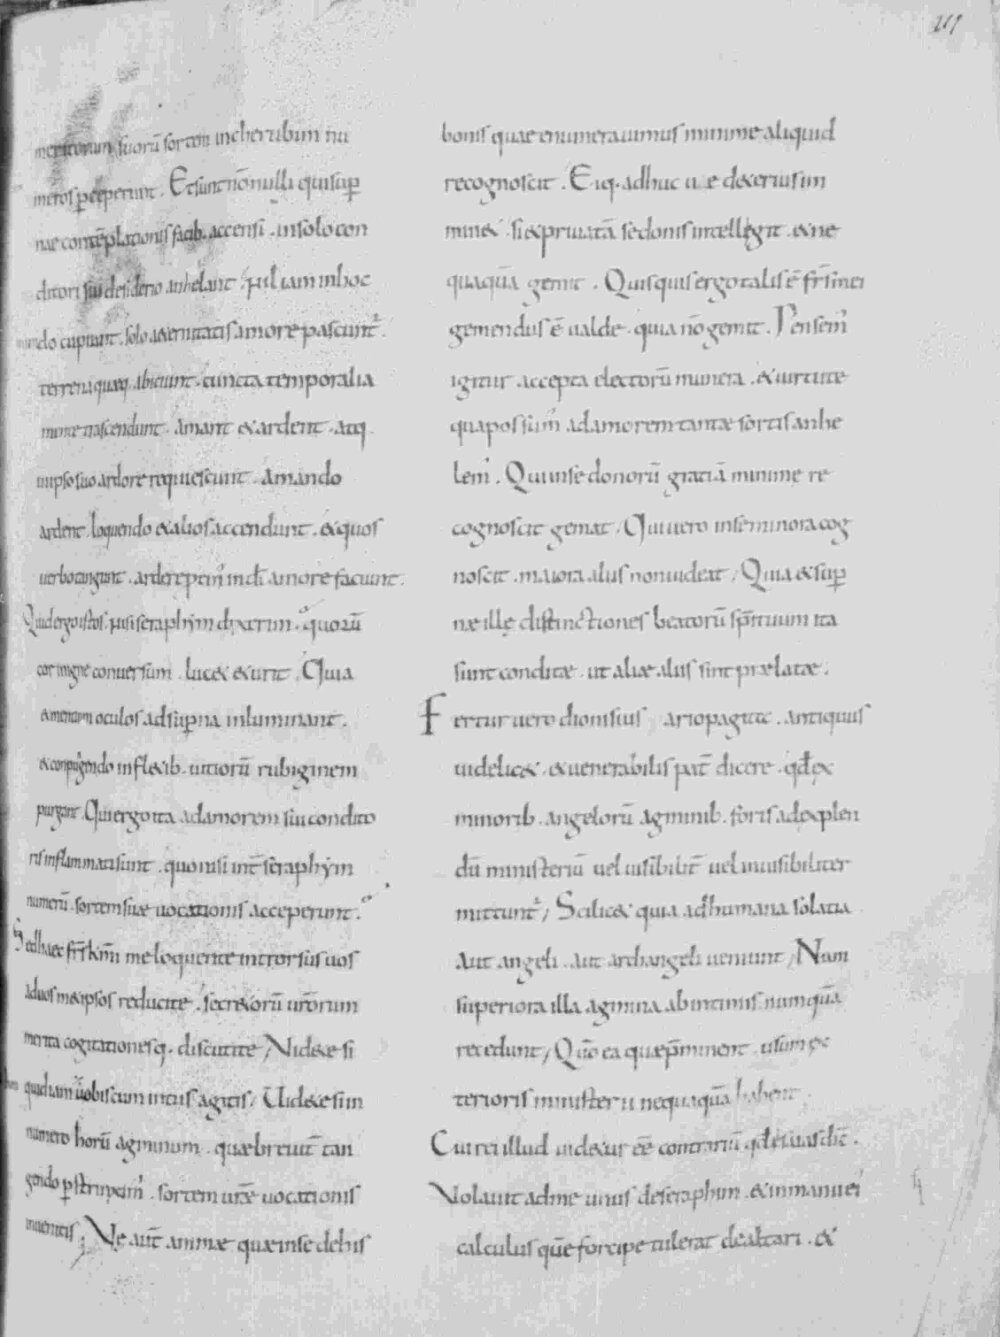 meritorum suorū sortem incherubim nu
meros pceperunt. Et sunt nōnulli qui sup
nae contēplationis facib. accensi. in solo con
ditori sui desiderio anhelant. nil iam in hoc
mundo cupiunt. solo aeternitatis amore pascunt.
terrena quaeq. abiciunt. cuncta temporalia
mente trascendunt. Amant & ardent. atq.
in ipso suo ardore requiescunt. Amando
ardent. loquendo & alios accendunt. & quos
verbo tangunt. ardere ptin in dī amore faciunt.
Quid ergo istos. nisi seraphym dixerim. quorū
cor in igne conversum. luc& & urit. Quia
& mentium oculos ad supna inluminant.
& conpungendo in fl&ib. vitiorū rubiginem
purgant. Qui ergo ita ad amorem sui condito
ris inflammati sunt. quo nisi int seraphym
numerū. sortem suae vocationis acceperunt.
Sed haec frs kmi me loquente introrsus vos
ad vos m&ipsos reducite. secr&orū vrorum
merita cogitationesq. discutite. Vid&e si
quid iam vobiscum intus agitis. Vid&e si in
numero horū agminum. quae brevit tan
gendo pstrinxim. sortem vrae vocationis
invenitis. Ve aut animae quae in se de his
bonis quae enumeravimus minime aliquid
recognoscit. Eiq. adhuc vae deterius im
min&. si & privatā se donis intellegit. & ne
quaquā gemit. Quisquis ergo talis ē frs mei
gemendus ē valde. quia nō gemit. Pensem
igitur accepta electorū munera. & virtute
qua possum ad amorem tantae sortis anhe
lem. Qui in se donorū gratiā minime re
cognoscit gemat. Qui vero in se minora cog
noscit. maiora aliis non invideat. Quia & sup
nae illę distinctiones beatorū spirituum ita
sunt conditae. ut aliae aliis sint praelatae.
Fertur vero dionisius ariopagita. antiquus
videlic&. & venerabilis pat dicere. qd ex
minorib. angelorū agminib. foris ad explen
dū ministeriū vel visibilit vel invisibiliter
mittunt. Scilic& quia ad humana solatia
aut angeli. aut archangeli veniunt. Nam
superiora illa agmina ab intimis numquā
recedunt. Qm ea quae pminent. usum ex
terioris ministerii nequaquā habent.
Cui rei illud vid&ur eē contrariū qd esaias dic.
Volavit ad me unus de seraphim. & in manu ei
calculus quē forcipe tulerat de altari. &